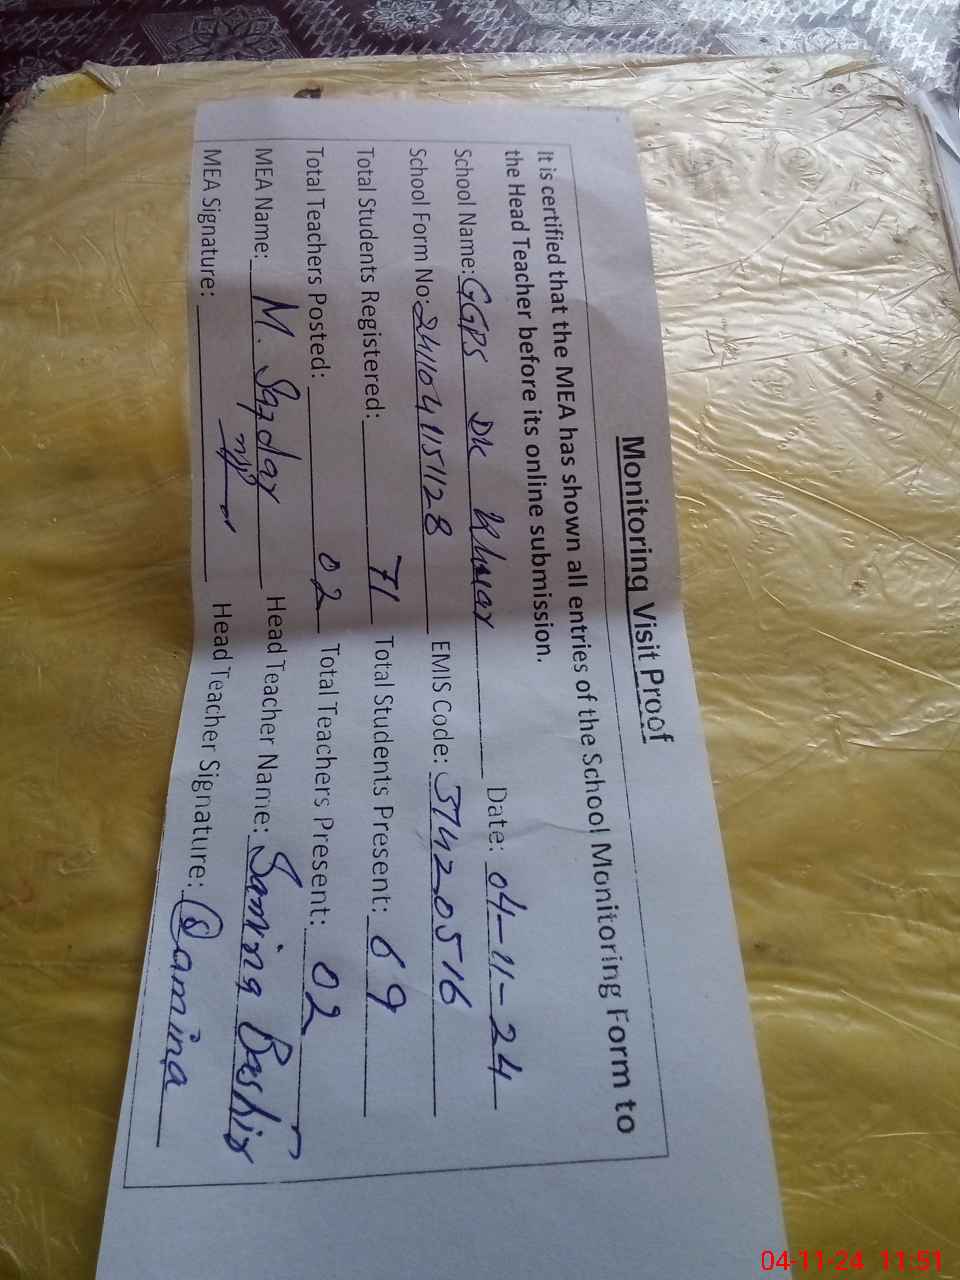 Monitoring Visit Proof
It is certified that the MEA has shown all entries of the School Monitoring Form to
the Head Teacher before its online submission.
School Name: GGPS DK Khuar Date: 04-11-24
School Form No: 241104115128 EMIS Code: 37420516
Total Students Registered: 71 Total Students Present: 69
Total Teachers Posted: 02 Total Teachers Present: 02
MEA Name: M. Safdar Head Teacher Name: Samina Bashir
MEA Signature: Head Teacher Signature: Samina
04-11-24 11:51